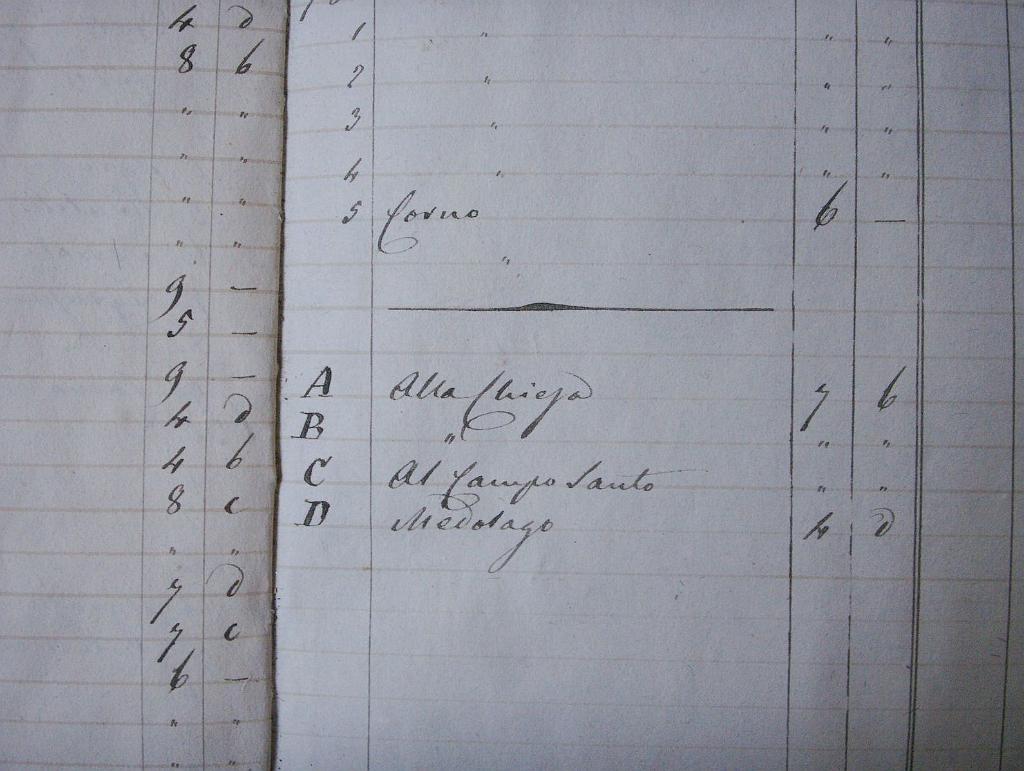 4 d
8 b
" "
" "
" "
" "
9 —
5 —
9 —
4 d
4 b
8 c
" "
7 d
7 c
6 —
" "
" "
1 " " "
2 " " "
3 " " "
4 " " "
5 Corno 6 —
"
A Alla Chiesa 7 b
B " " "
C Al Campo Santo " "
D Medolago 4 d